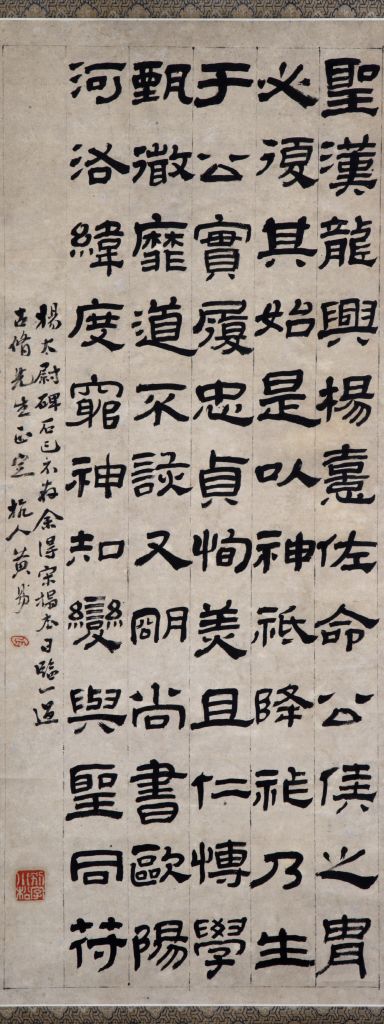 聖漢龍興楊憙佐命公侯之胄
必復其始是以神祇降祉乃生
于公實履忠貞恂美且仁愽學
甄微靡道不該又明尚書歐陽
河洛緯度窮神知變與聖同符
楊太尉碑石已不存余得宋搨本日臨一過
古脩先生正定 杭人黃易
別字小松